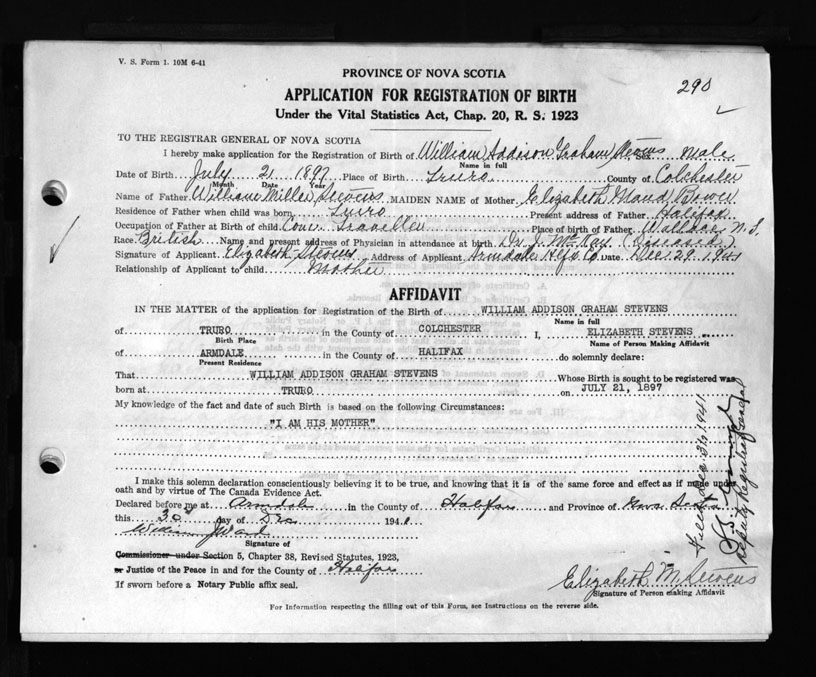 V. S. Form 1. 10M 6-41
290
PROVINCE OF NOVA SCOTIA
APPLICATION FOR REGISTRATION OF BIRTH
Under the Vital Statistics Act, Chap. 20, R. S. 1923
TO THE REGISTRAR GENERAL OF NOVA SCOTIA
I hereby make application for the Registration of Birth of William Addison Graham Stevens Sex Male
Name in full
Date of Birth July 21 1897 Place of Birth Truro County of Colchester
Month Date Year
Name of Father William Miller Stevens MAIDEN NAME of Mother Elizabeth Maud Bower
Residence of Father when child was born Truro Present address of Father Halifax
Occupation of Father at Birth of child Com. Traveller Place of birth of Father Wallace N.S.
Race British Name and present address of Physician in attendance at birth Dr. J. McKay (Deceased)
Signature of Applicant Elizabeth Stevens Address of Applicant Armdale Hfx Co. Date Dec. 29, 1941
Relationship of Applicant to child Mother
AFFIDAVIT
IN THE MATTER of the application for Registration of the Birth of WILLIAM ADDISON GRAHAM STEVENS
Name in full
of TRURO in the County of COLCHESTER I, ELIZABETH STEVENS
Birth Place Name of Person Making Affidavit
of ARMDALE in the County of HALIFAX do solemnly declare:
Present Residence
That WILLIAM ADDISON GRAHAM STEVENS Whose Birth is sought to be registered was
born at TRURO on JULY 21, 1897
My knowledge of the fact and date of such Birth is based on the following Circumstances:
"I AM HIS MOTHER"
I make this solemn declaration conscientiously believing it to be true, and knowing that it is of the same force and effect as if made under
oath and by virtue of The Canada Evidence Act.
Declared before me at Armdale in the County of Halifax and Province of Nova Scotia
this 30 day of Dec 1941
William J Ward
Signature of
Commissioner under Section 5, Chapter 38, Revised Statutes, 1923,
or Justice of the Peace in and for the County of Halifax
If sworn before a Notary Public affix seal.
Elizabeth M. Stevens
Signature of Person making Affidavit
For Information respecting the filling out of this Form, see Instructions on the reverse side.
Filed Dec. 31, 1941
Deputy Registrar General